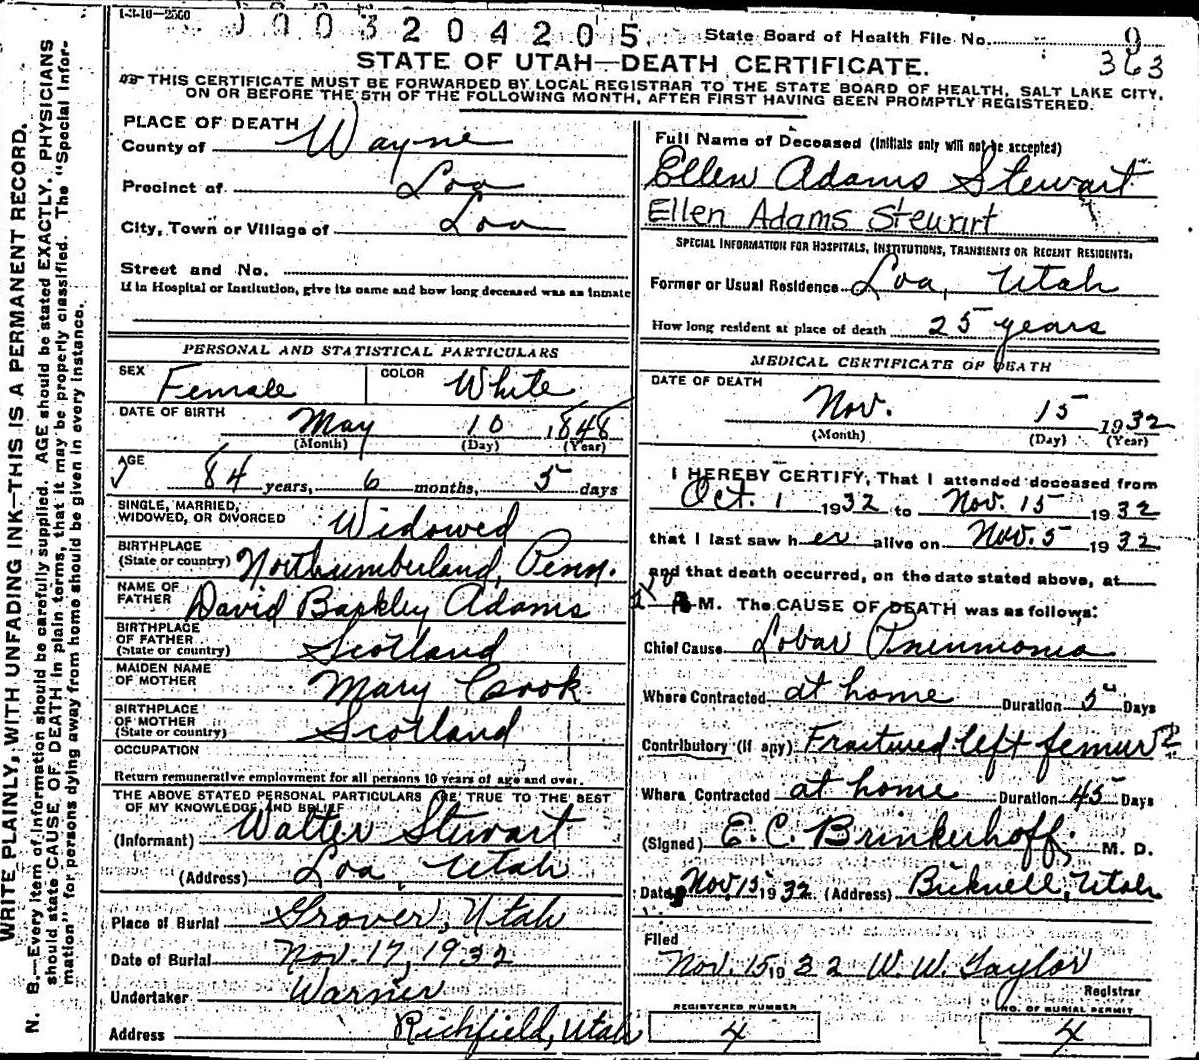 1-3-10-2500
0003204205
State Board of Health File No. 9
363
STATE OF UTAH—DEATH CERTIFICATE.
THIS CERTIFICATE MUST BE FORWARDED BY LOCAL REGISTRAR TO THE STATE BOARD OF HEALTH, SALT LAKE CITY,
ON OR BEFORE THE 5TH OF THE FOLLOWING MONTH, AFTER FIRST HAVING BEEN PROMPTLY REGISTERED.
WRITE PLAINLY, WITH UNFADING INK—THIS IS A PERMANENT RECORD.
N. B.—Every item of information should be carefully supplied. AGE should be stated EXACTLY. PHYSICIANS
should state CAUSE OF DEATH in plain terms, that it may be properly classified. The "Special Infor-
mation" for persons dying away from home should be given in every instance.
PLACE OF DEATH
County of Wayne
Precinct of Loa
City, Town or Village of Loa
Street and No.
If in Hospital or Institution, give its name and how long deceased was an inmate
PERSONAL AND STATISTICAL PARTICULARS
SEX Female COLOR White
DATE OF BIRTH May 10 1848
(Month) (Day) (Year)
AGE 84 years, 6 months, 5 days
SINGLE, MARRIED,
WIDOWED, OR DIVORCED Widowed
BIRTHPLACE
(State or country) Northumberland, Penn.
NAME OF
FATHER David Barkley Adams
BIRTHPLACE
OF FATHER
(State or country) Scotland
MAIDEN NAME
OF MOTHER Mary Cook
BIRTHPLACE
OF MOTHER
(State or country) Scotland
OCCUPATION
Return remunerative employment for all persons 10 years of age and over.
THE ABOVE STATED PERSONAL PARTICULARS ARE TRUE TO THE BEST
OF MY KNOWLEDGE AND BELIEF
(Informant) Walter Stewart
(Address) Loa, Utah
Place of Burial Grover, Utah
Date of Burial Nov. 17, 1932
Undertaker Warner
Address Richfield, Utah
Full Name of Deceased (Initials only will not be accepted)
Ellen Adams Stewart
Ellen Adams Stewart
SPECIAL INFORMATION FOR HOSPITALS, INSTITUTIONS, TRANSIENTS OR RECENT RESIDENTS:
Former or Usual Residence Loa, Utah
How long resident at place of death 25 years
MEDICAL CERTIFICATE OF DEATH
DATE OF DEATH
Nov. 15 1932
(Month) (Day) (Year)
I HEREBY CERTIFY, That I attended deceased from
Oct. 1 1932 to Nov. 15 1932
that I last saw her alive on Nov. 5 1932
and that death occurred, on the date stated above, at
M. The CAUSE OF DEATH was as follows:
Chief Cause Lobar Pneumonia
Where Contracted at home Duration 5 Days
Contributory (if any) Fractured left femur
Where Contracted at home Duration 45 Days
(Signed) E. C. Brinkerhoff, M. D.
Date Nov. 15 1932 (Address) Bicknell, Utah
Filed
Nov. 15 1932 W. W. Taylor
Registrar
REGISTERED NUMBER
4
NO. OF BURIAL PERMIT
4